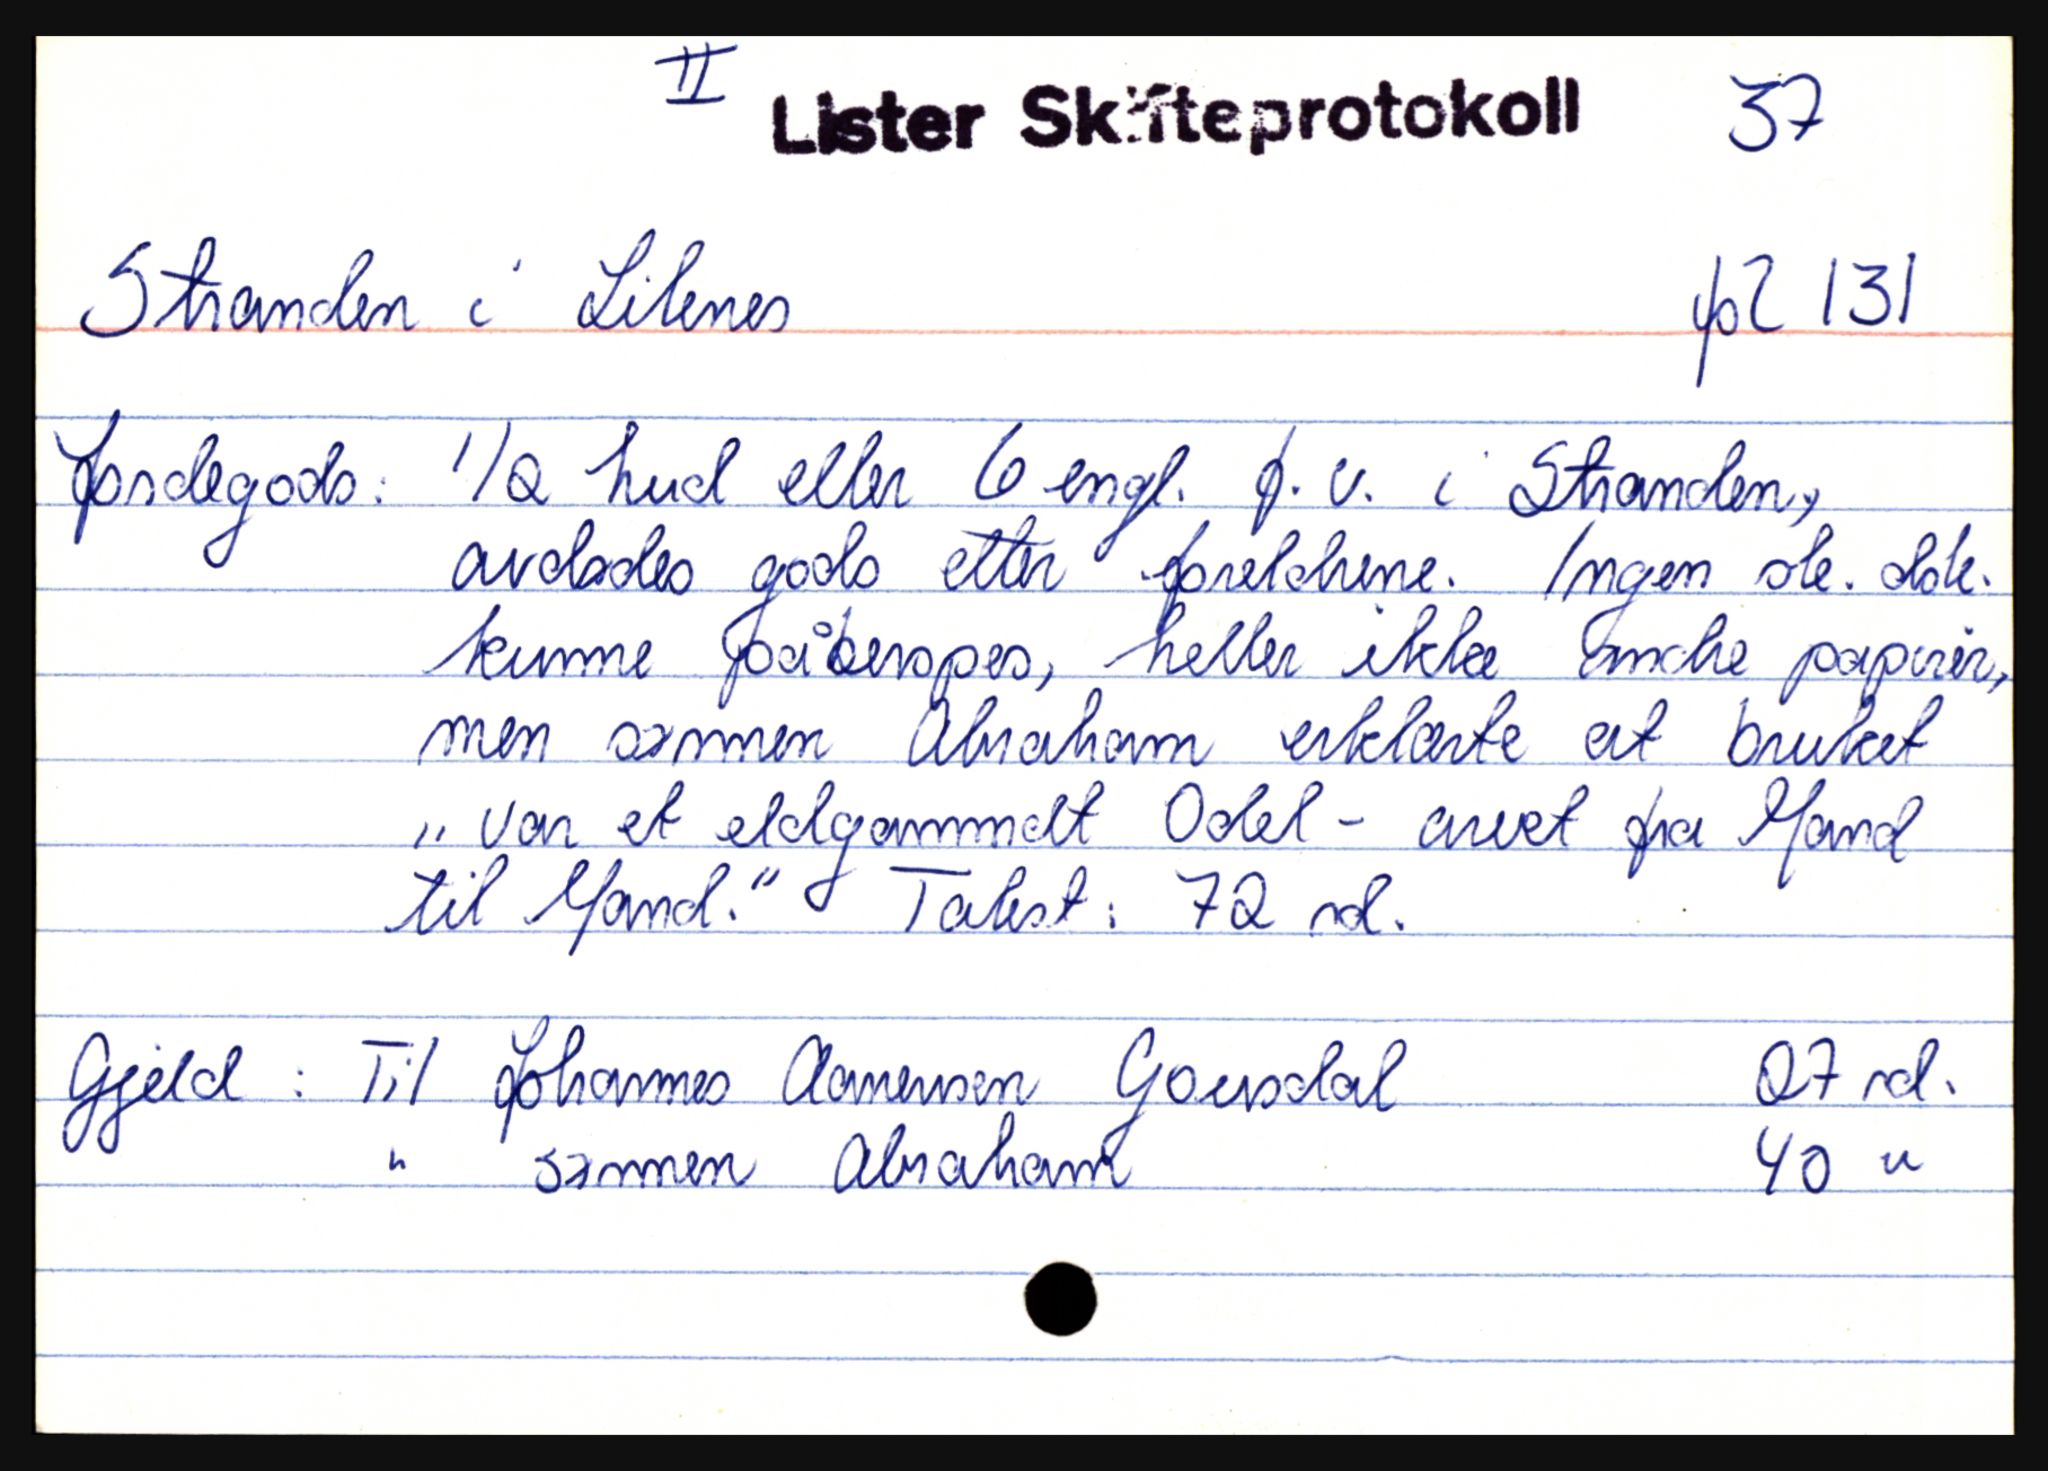 II Lister Skifteprotokoll 37
Stranden i Litenes fol 131
Jordegods: 1/2 hud eller 6 engl. f. v. i Stranden,
avdødes gods etter foreldrene. Ingen sk. dok.
kunne påberopes, heller ikke andre papirer,
men sønnen Abraham erklærte at bruket
„var et eldgammelt Odel - arvet fra Mand
til Mand." Takst: 72 rd.
Gjeld: Til Johannes Aanensen Gousdal 27 rd.
" sønnen Abraham 40 "